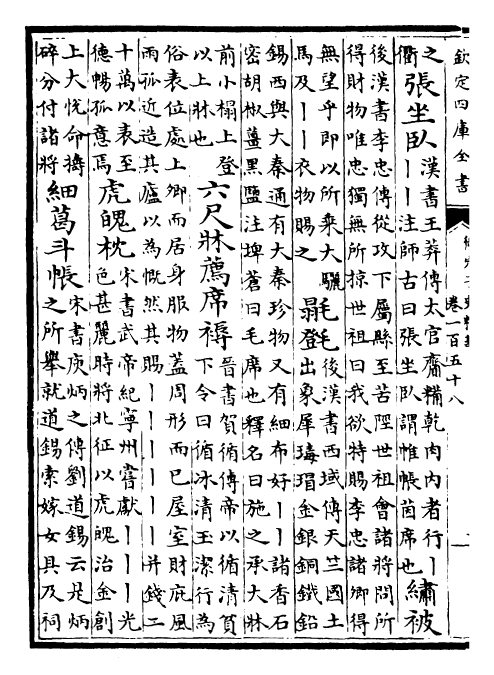 欽定四庫全書
卷一百五十八
之衝張坐臥漢書王莽傳太官齎糒乾肉內者行丨丨丨注師古曰張坐臥謂帷帳茵席也繡被
後漢書李忠傳從攻下屬縣至苦陘世祖會諸將問所得財物唯忠獨無所掠世祖曰我欲特賜李忠諸卿得
無望乎即以所乗大驪馬及丨丨衣物賜之毾㲪後漢書西域傳天竺國土出象犀瑇瑁金銀銅鐵鉛
錫西與大秦通有大秦珍物又有細布好丨丨諸香石密胡椒薑黑鹽注埤蒼曰毛席也釋名曰施之承大牀
前小榻上登以上牀也六尺牀薦席褥晉書賀循傳帝以循清貧下令曰循冰清玉潔行為
俗表位處上卿而居身服物蓋周形而已屋室財庇風雨孤近造其廬以為慨然其賜丨丨丨丨丨丨并錢二
十萬以表至德暢孤意焉虎魄枕宋書武帝紀寧州嘗獻丨丨丨光色甚麗時將北征以虎魄治金創
上大悅命擣碎分付諸將細葛斗帳宋書庾炳之傳劉道錫云是炳之所舉就道錫索嫁女具及祠